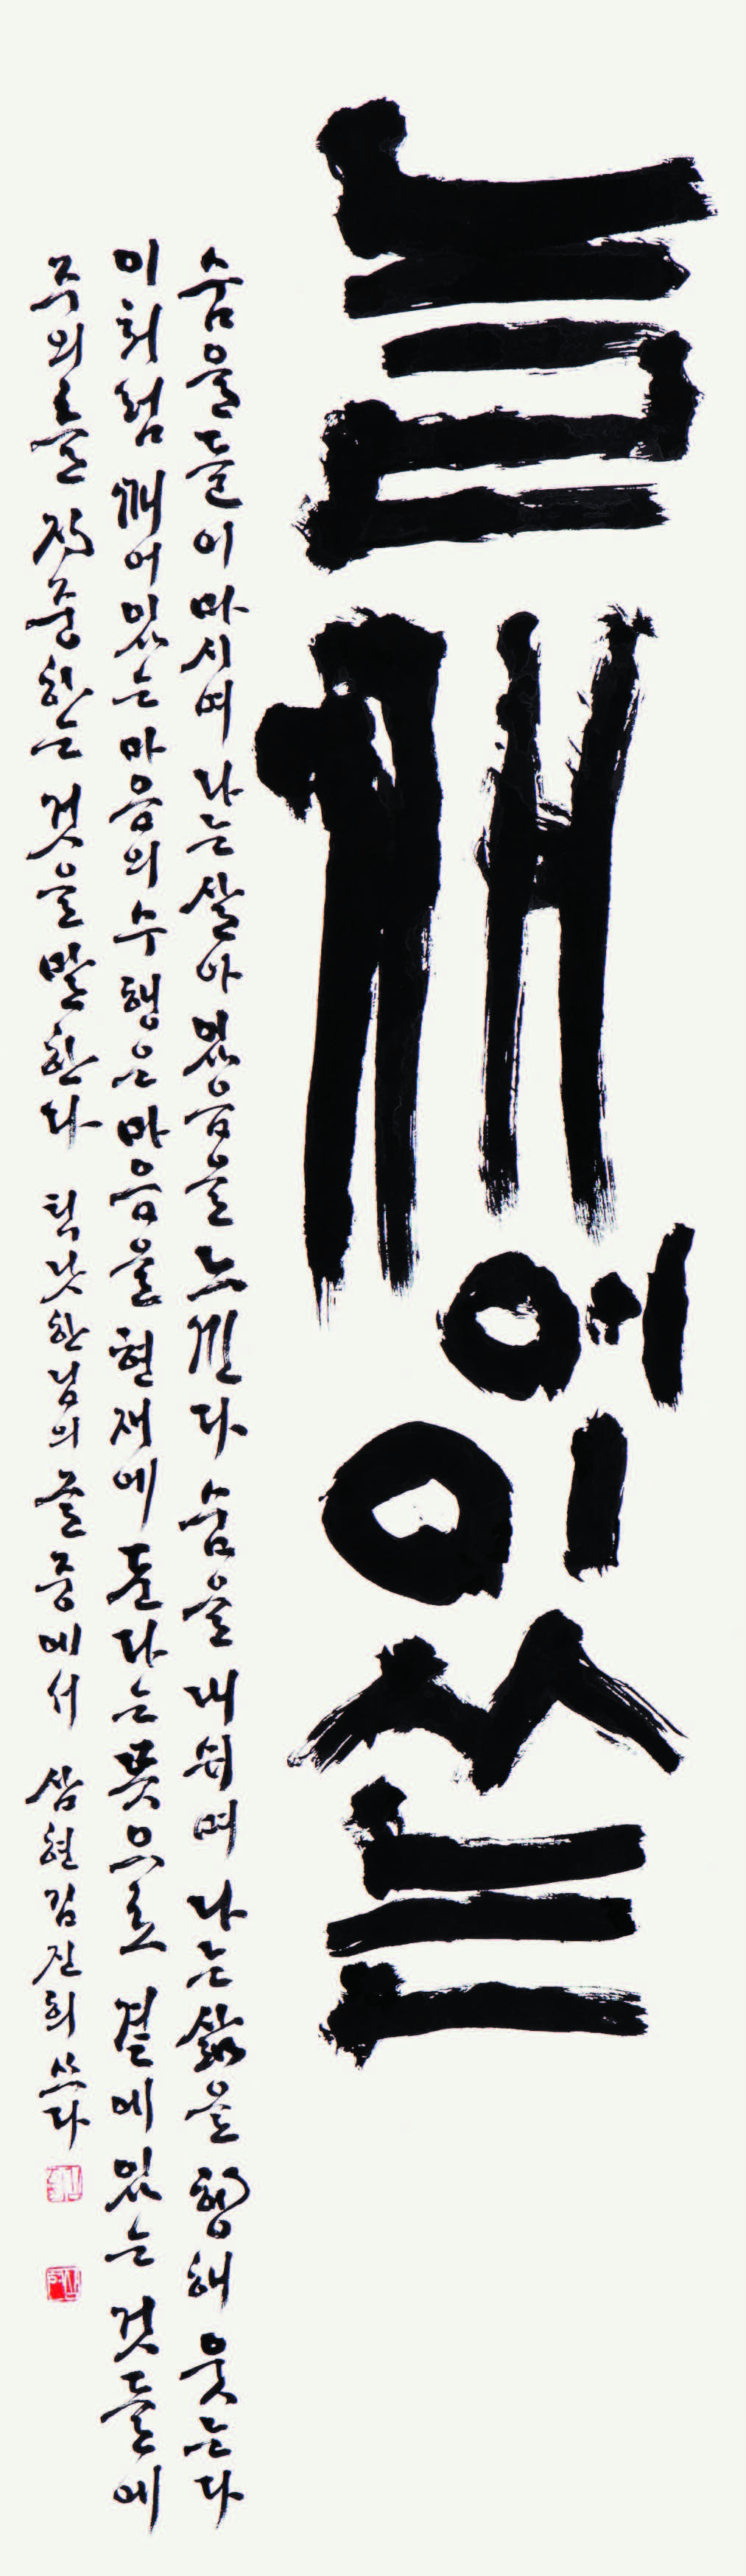 늘 깨어있는
숨을 들이마시며 나는 살아있음을 느낀다 숨을 내쉬며 나는 삶을 향해 웃는다
이처럼 깨어있는 마음의 수행은 마음을 현재에 둔다는 뜻으로 곁에 있는 것들에
주의를 집중하는 것을 말한다 틱낫한님의 글중에서 삼현 김진희 쓰다